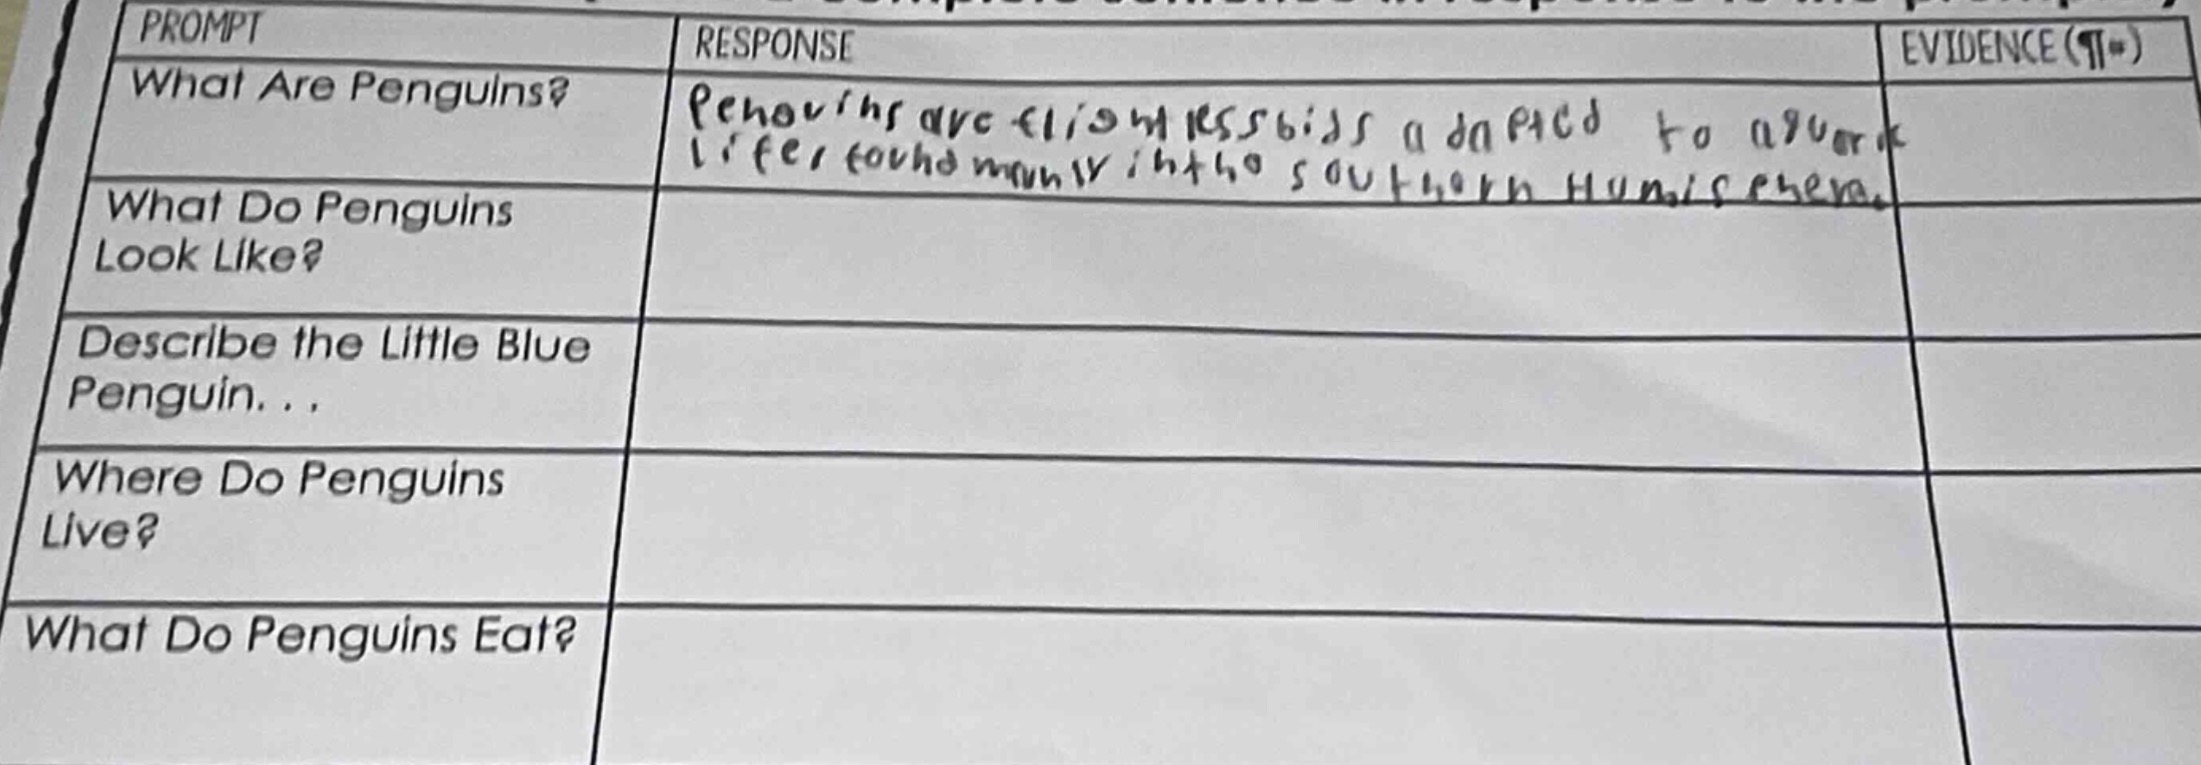 PROMPT
RESPONSE
EVIDENCE (¶#)
What Are Penguins?
Penguins are flightless bids adapted to
life, found mainly in the southern Hemisphere.
What Do Penguins
Look Like?
Describe the Little Blue
Penguin. . .
Where Do Penguins
Live?
What Do Penguins Eat?